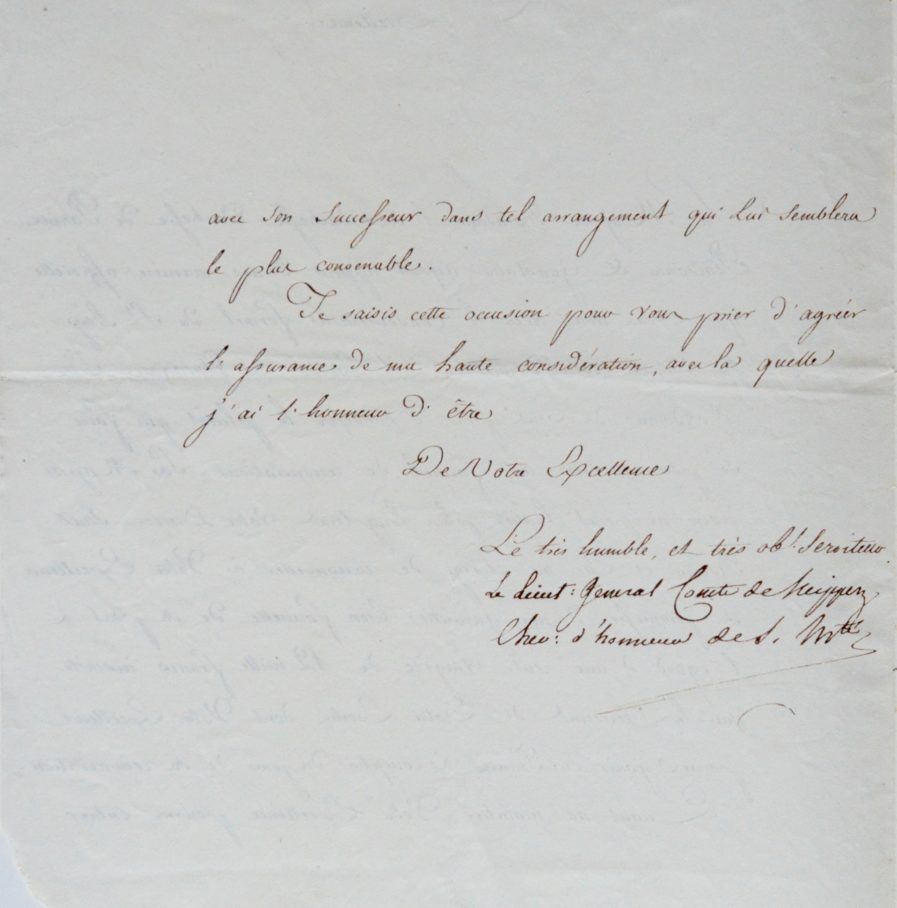 avec son Successeur dans tel arrangement qui Lui semblera
le plus convenable.
Je saisis cette occasion pour vous prier d'agréer
l'assurance de ma haute considération, avec la quelle
j'ai l'honneur d'être
De Votre Excellence
Le très humble, et très obt. Serviteur
Le Lieut: General Comte de Neipperg
Chev: d'honneur de S. Mté